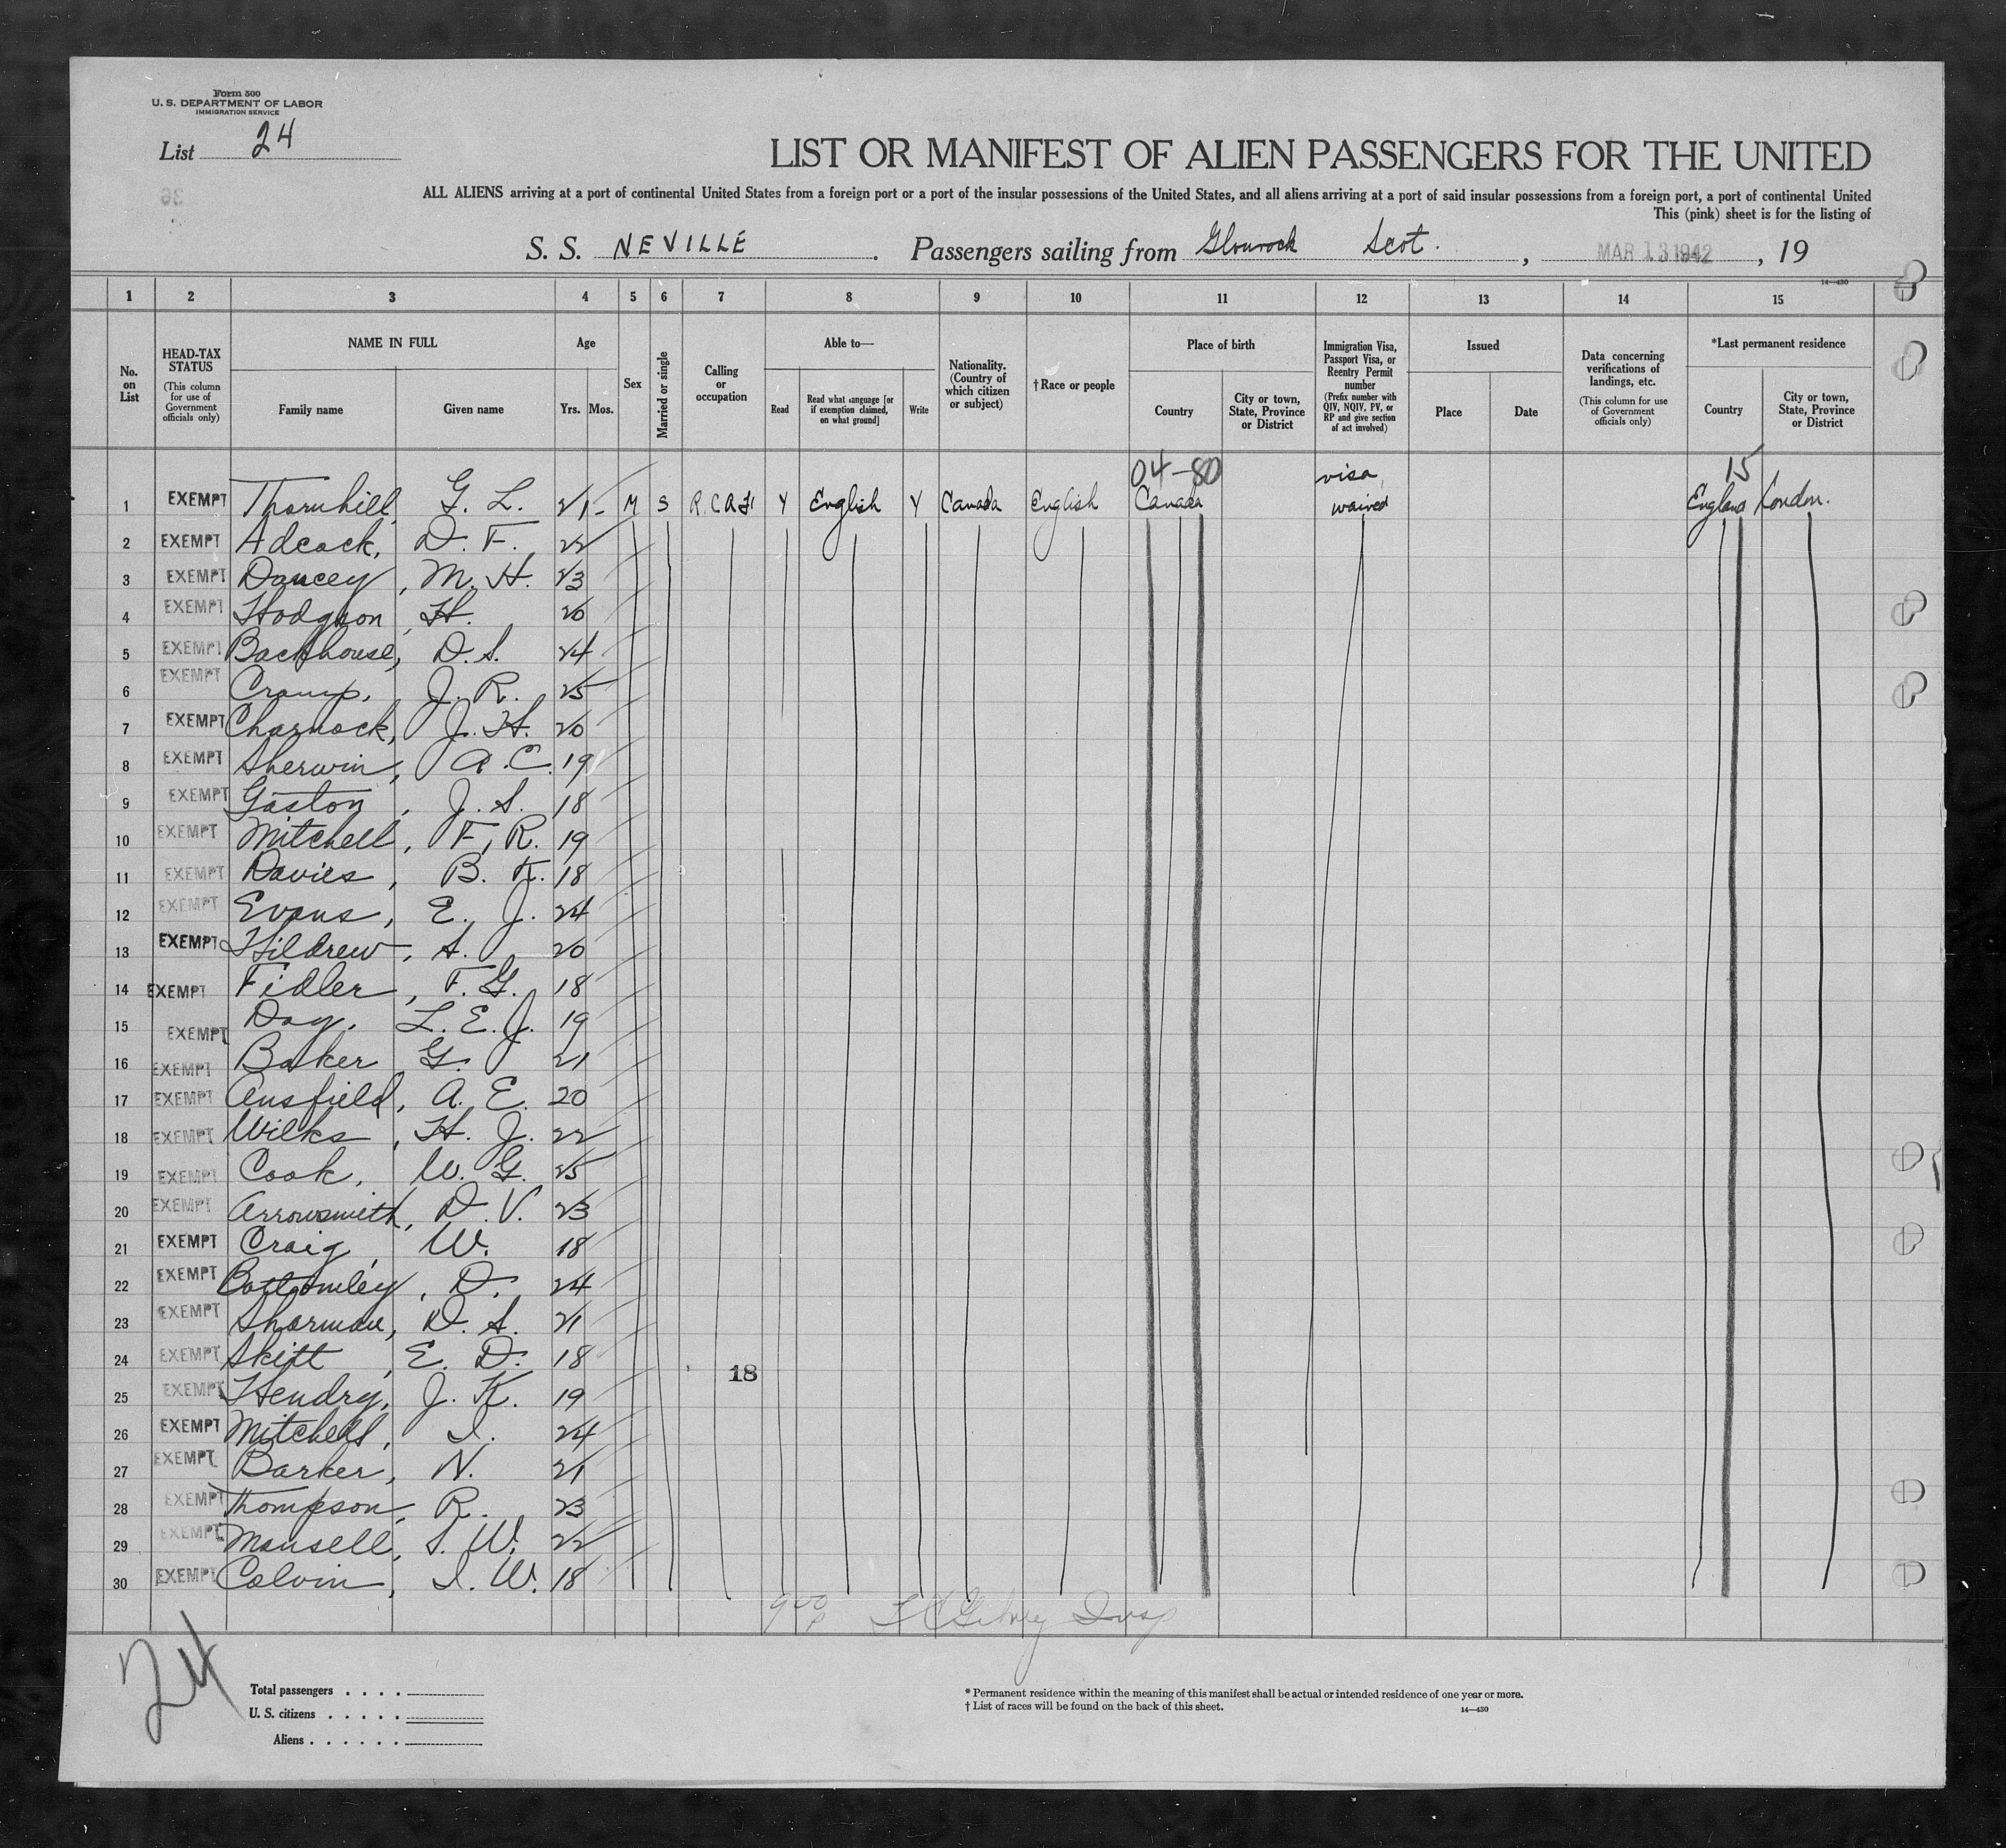 Form 500
U. S. DEPARTMENT OF LABOR
IMMIGRATION SERVICE
List 24
LIST OR MANIFEST OF ALIEN PASSENGERS FOR THE UNITED
ALL ALIENS arriving at a port of continental United States from a foreign port or a port of the insular possessions of the United States, and all aliens arriving at a port of said insular possessions from a foreign port, a port of continental United
This (pink) sheet is for the listing of
S. S. NEVILLE . Passengers sailing from Glourock Scot. , MAR 13 1942 , 19
14—430
1 2 3 4 5 6 7 8 9 10 11 12 13 14 15
No. on List
HEAD-TAX STATUS (This column for use of Government officials only)
NAME IN FULL
Family name Given name
Age
Yrs. Mos.
Sex
Married or single
Calling or occupation
Able to—
Read
Read what language [or if exemption claimed, on what ground]
Write
Nationality. (Country of which citizen or subject)
†Race or people
Place of birth
Country
City or town, State, Province or District
Immigration Visa, Passport Visa, or Reentry Permit number (Prefix number with QIV, NQIV, PV, or RP and give section of act involved)
Issued
Place Date
Data concerning verifications of landings, etc. (This column for use of Government officials only)
*Last permanent residence
Country
City or town, State, Province or District
04-80 visa 15
1 EXEMPT Thornhill G. L. 21 M S R.C.A.F. Y English Y Canada English Canada waived England London.
2 EXEMPT Adcock, D. F. 22
3 EXEMPT Dancey, M. H. 23
4 EXEMPT Hodgson, H. 20
5 EXEMPT Backhouse, D. S. 24
6 EXEMPT Cramp, J. R. 25
7 EXEMPT Charnock, J. H. 20
8 EXEMPT Sherwin, A. C. 19
9 EXEMPT Gaston, J. S. 18
10 EXEMPT Mitchell, F. R. 19
11 EXEMPT Davies, B. K. 18
12 EXEMPT Evans, E. J. 24
13 EXEMPT Hildrew, S. 20
14 EXEMPT Fidler, F. G. 18
15 EXEMPT Day, L. E. J. 19
16 EXEMPT Baker G. 21
17 EXEMPT Ansfield, A. E. 20
18 EXEMPT Wilks, H. J. 22
19 EXEMPT Cook, W. G. 25
20 EXEMPT Arrowsmith, D. V. 23
21 EXEMPT Craig, W. 18
22 EXEMPT Bottomley, D. 24
23 EXEMPT Sharman, D. S. 21
24 EXEMPT Skitt, E. D. 18
18
25 EXEMPT Hendry, J. K. 19
26 EXEMPT Mitchell, I. 24
27 EXEMPT Barker, N. 21
28 EXEMPT Thompson, R. 23
29 EXEMPT Mansell, S. W. 22
30 EXEMPT Colvin, I. W. 18
24
Total passengers . . . .
U. S. citizens . . . . .
Aliens . . . . . .
* Permanent residence within the meaning of this manifest shall be actual or intended residence of one year or more.
† List of races will be found on the back of this sheet.
14—430